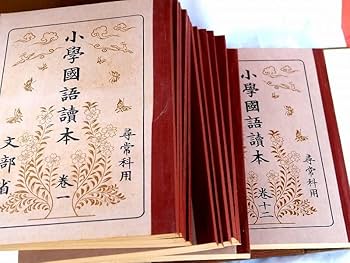 小學國語讀本
尋常科用
卷一
文部省
小學國語讀本
尋常科用
卷十二